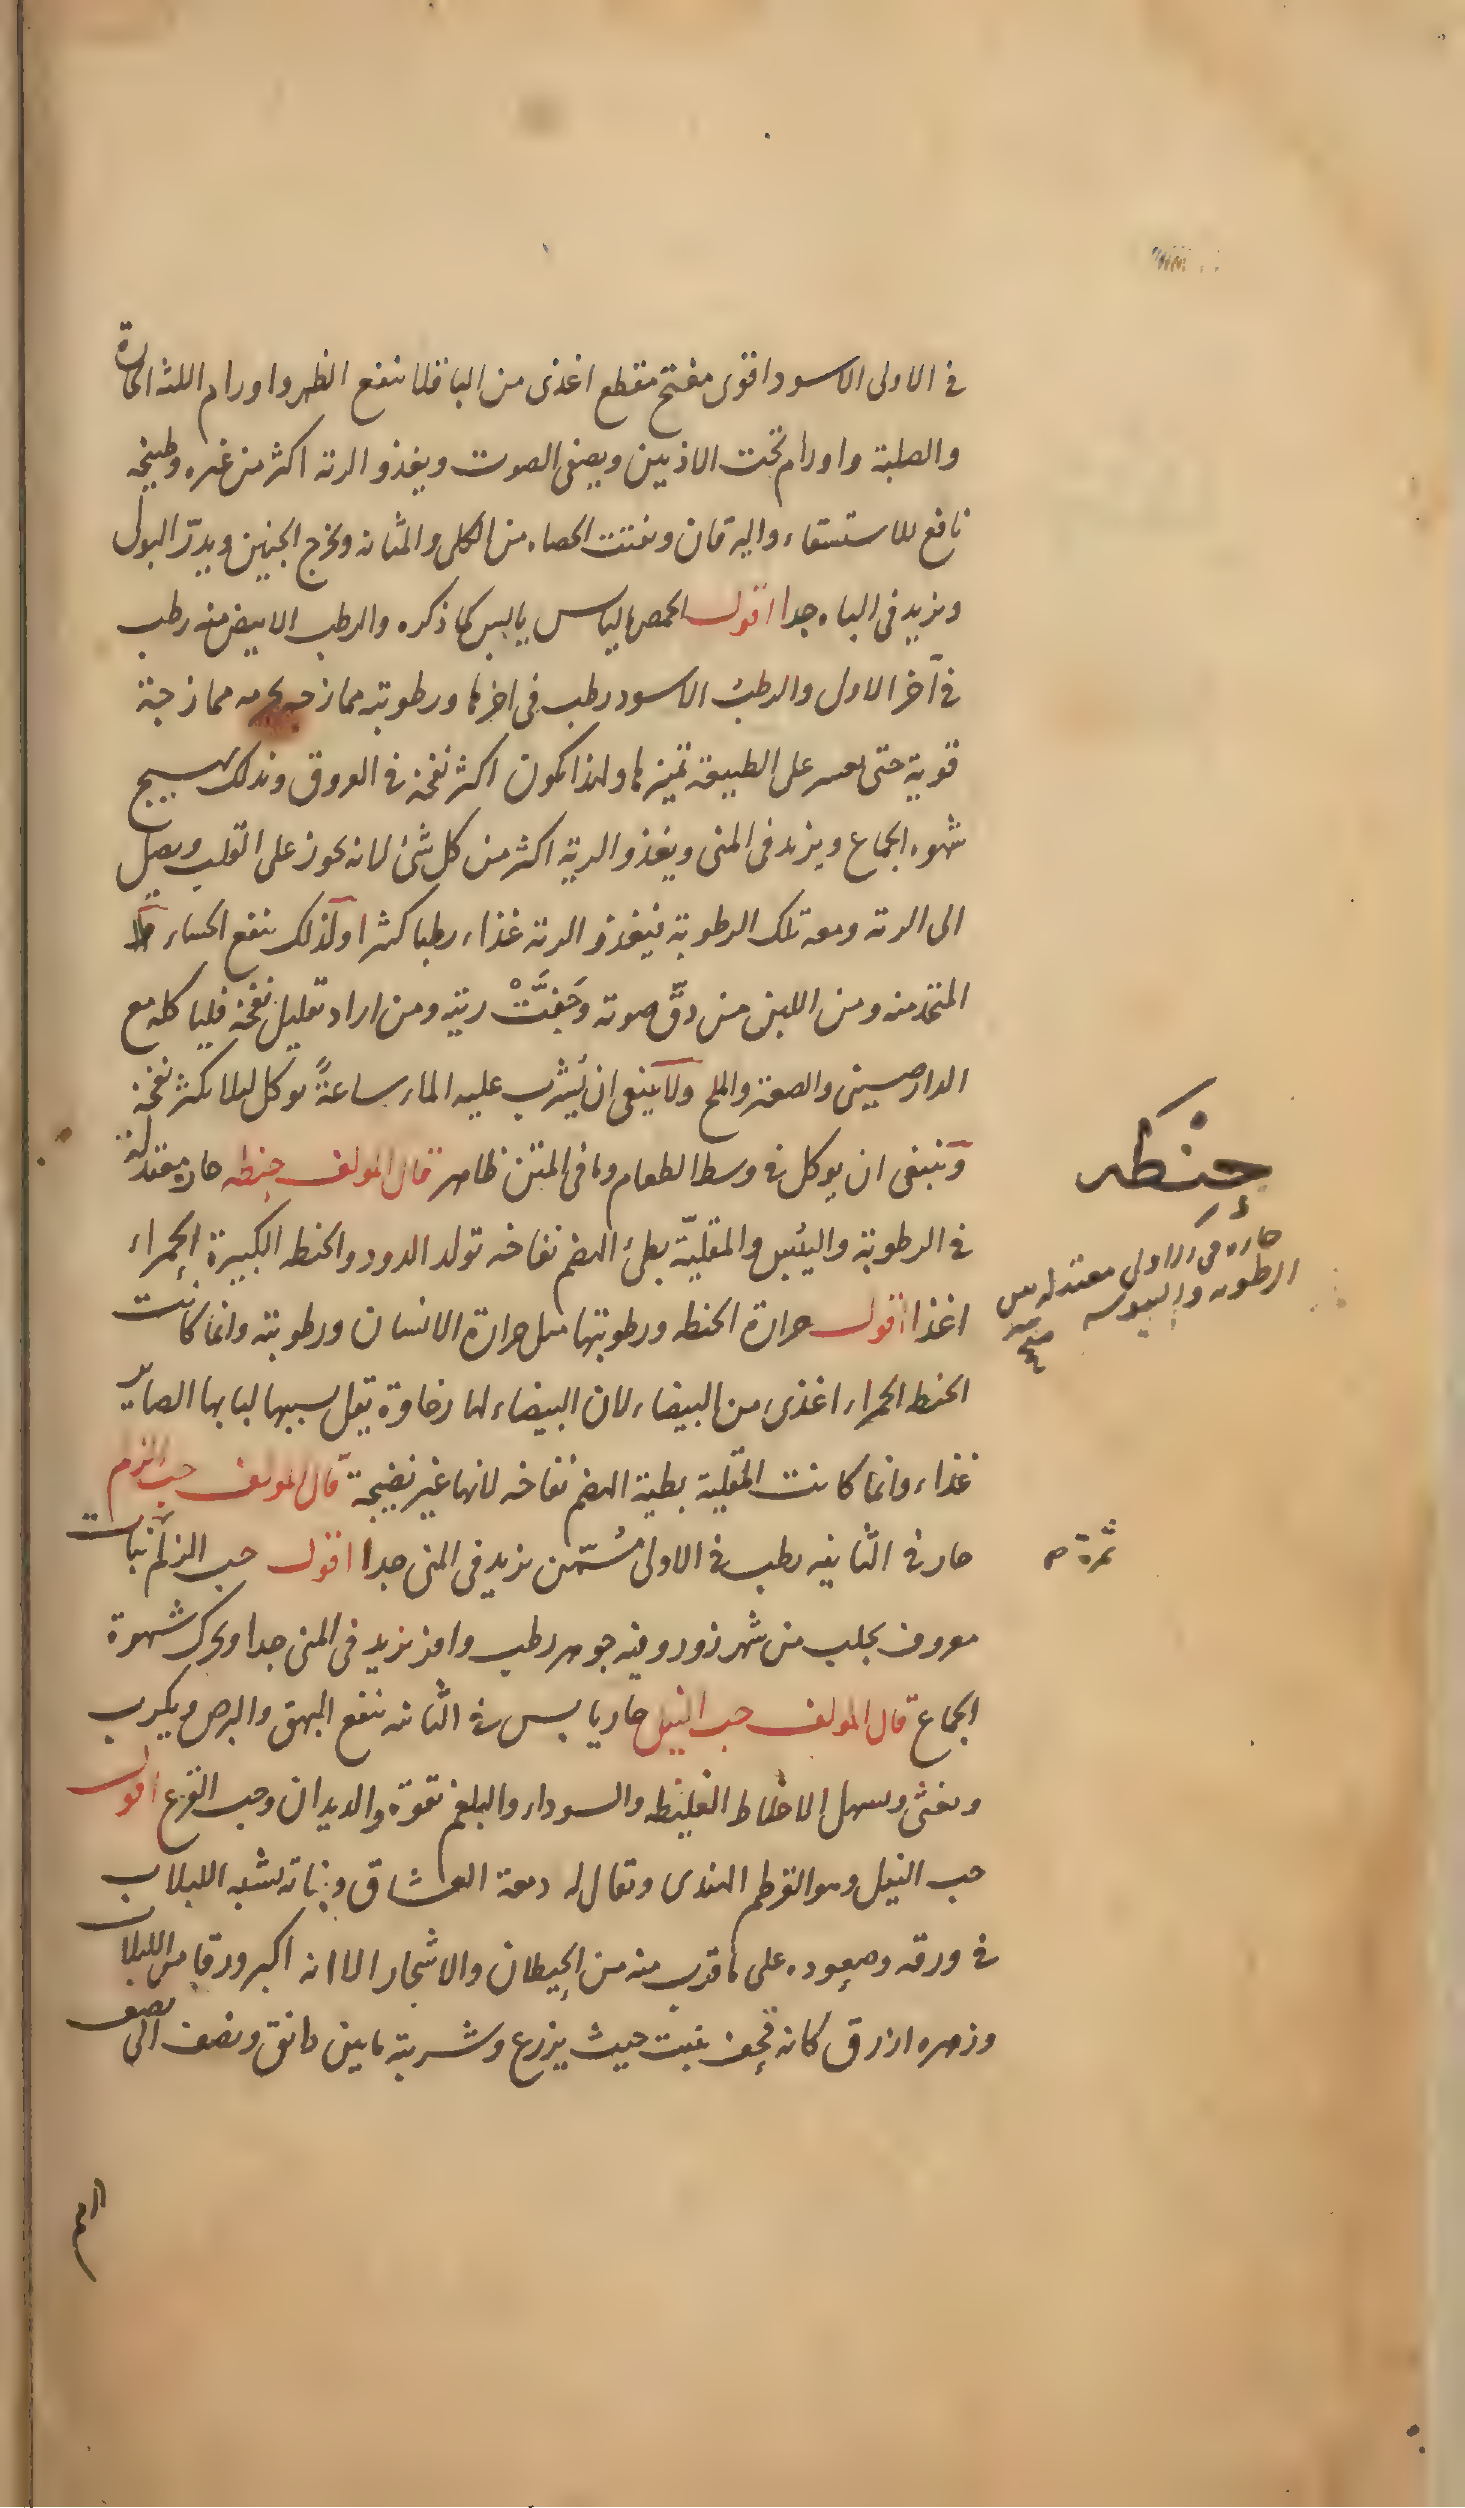 في الاولى الاسود اقوى مفتح مقطع اغذى من الباقلا ينفع الظهر واورام اللثه الحارة
والصلبة واورام تحت الاذنين ويصفى الصوت ويغذو الرئة اكثر من غيره وطبيخه
نافع للاستسقاء واليرقان ويفتت الحصاه من الكلى والمثانه ويخرج الجنين ويدرّ البول
ويزيد في الباه جدا اقول الحمص اليابس يابس كما ذكره والرطب الابيض منه رطب
في آخر الاولى والرطب الاسود رطب في اخرها ورطوبته ممازجه لجرمه ممازجة
قوية حتى يعسر على الطبيعة تميزها ولهذا يكون اكثر نفخه في العروق وبذلك يهيج
شهوه الجماع ويزيد في المنى ويغذو الرية اكثر من كل شئ لانه يجوز على القلب ويصل
الى الرئة ومعه تلك الرطوبة فيغذو الرئة غذاء رطبا كثيرا ولذلك ينفع الحساء
المتخذ منه ومن اللبن من دقّ صوته وجَفَّتْ ريته ومن اراد تقليل نفخه فلياكله مع
الدارصيني والصعتر والملح ولا ينبغى ان يُشرب عليه الماء ساعةً يوكل لئلا يكثر نفخه
وينبغى ان يوكل في وسط الطعام وما في المتن ظاهر قال المولف حنطه حاره معتدلة
في الرطوبة واليُبس والمقليّة بطئ الهضم نفاخه تولد الدود والحنطه الكبيرة الحمراء
اغذا اقول حرارة الحنطه ورطوبتها مثل حرارة الانسان ورطوبته وانما كانت
الحنط الحمراء اغذى من البيضاء لان البيضاء لها رخاوة يقل بسببها لبابها الصاير
غذاء وانما كانت المقلية بطية الهضم نفاخه لانها غير نضيجة قال المولف حب الزلم
حار في الثانيه رطب في الاولى مُسَمّن يزيد في المنى جدا اقول حب الزلم نبات
معروف يجلب من شهرزور وفيه جوهر رطب وافر يزيد في المنى جدا ويحرك شهوة
الجماع قال المولف حب النيل حار يابس في الثانيه ينفع البهق والبرص ويكرب
ويغثى ويسهل الاخلاط الغليظه والسوداء والبلغم بقوة والديدان وحب القرع اقول
حب النيل وهو القرطم الهندى ويقال له دمعة العشاق ونباته يشبه اللبلاب
في ورقه وصعوده على ما قرب منه من الحيطان والاشجار الا انه اكبر ورقا من اللبلاب
وزهره ازرق كانه قحف ينبت حيث يزرع وشربته ما بين دانق ونصف الى نصف
حِنْطَه
حاره في الاولى معتدله بين
الرطوبه واليبوسه
ثمرة ص